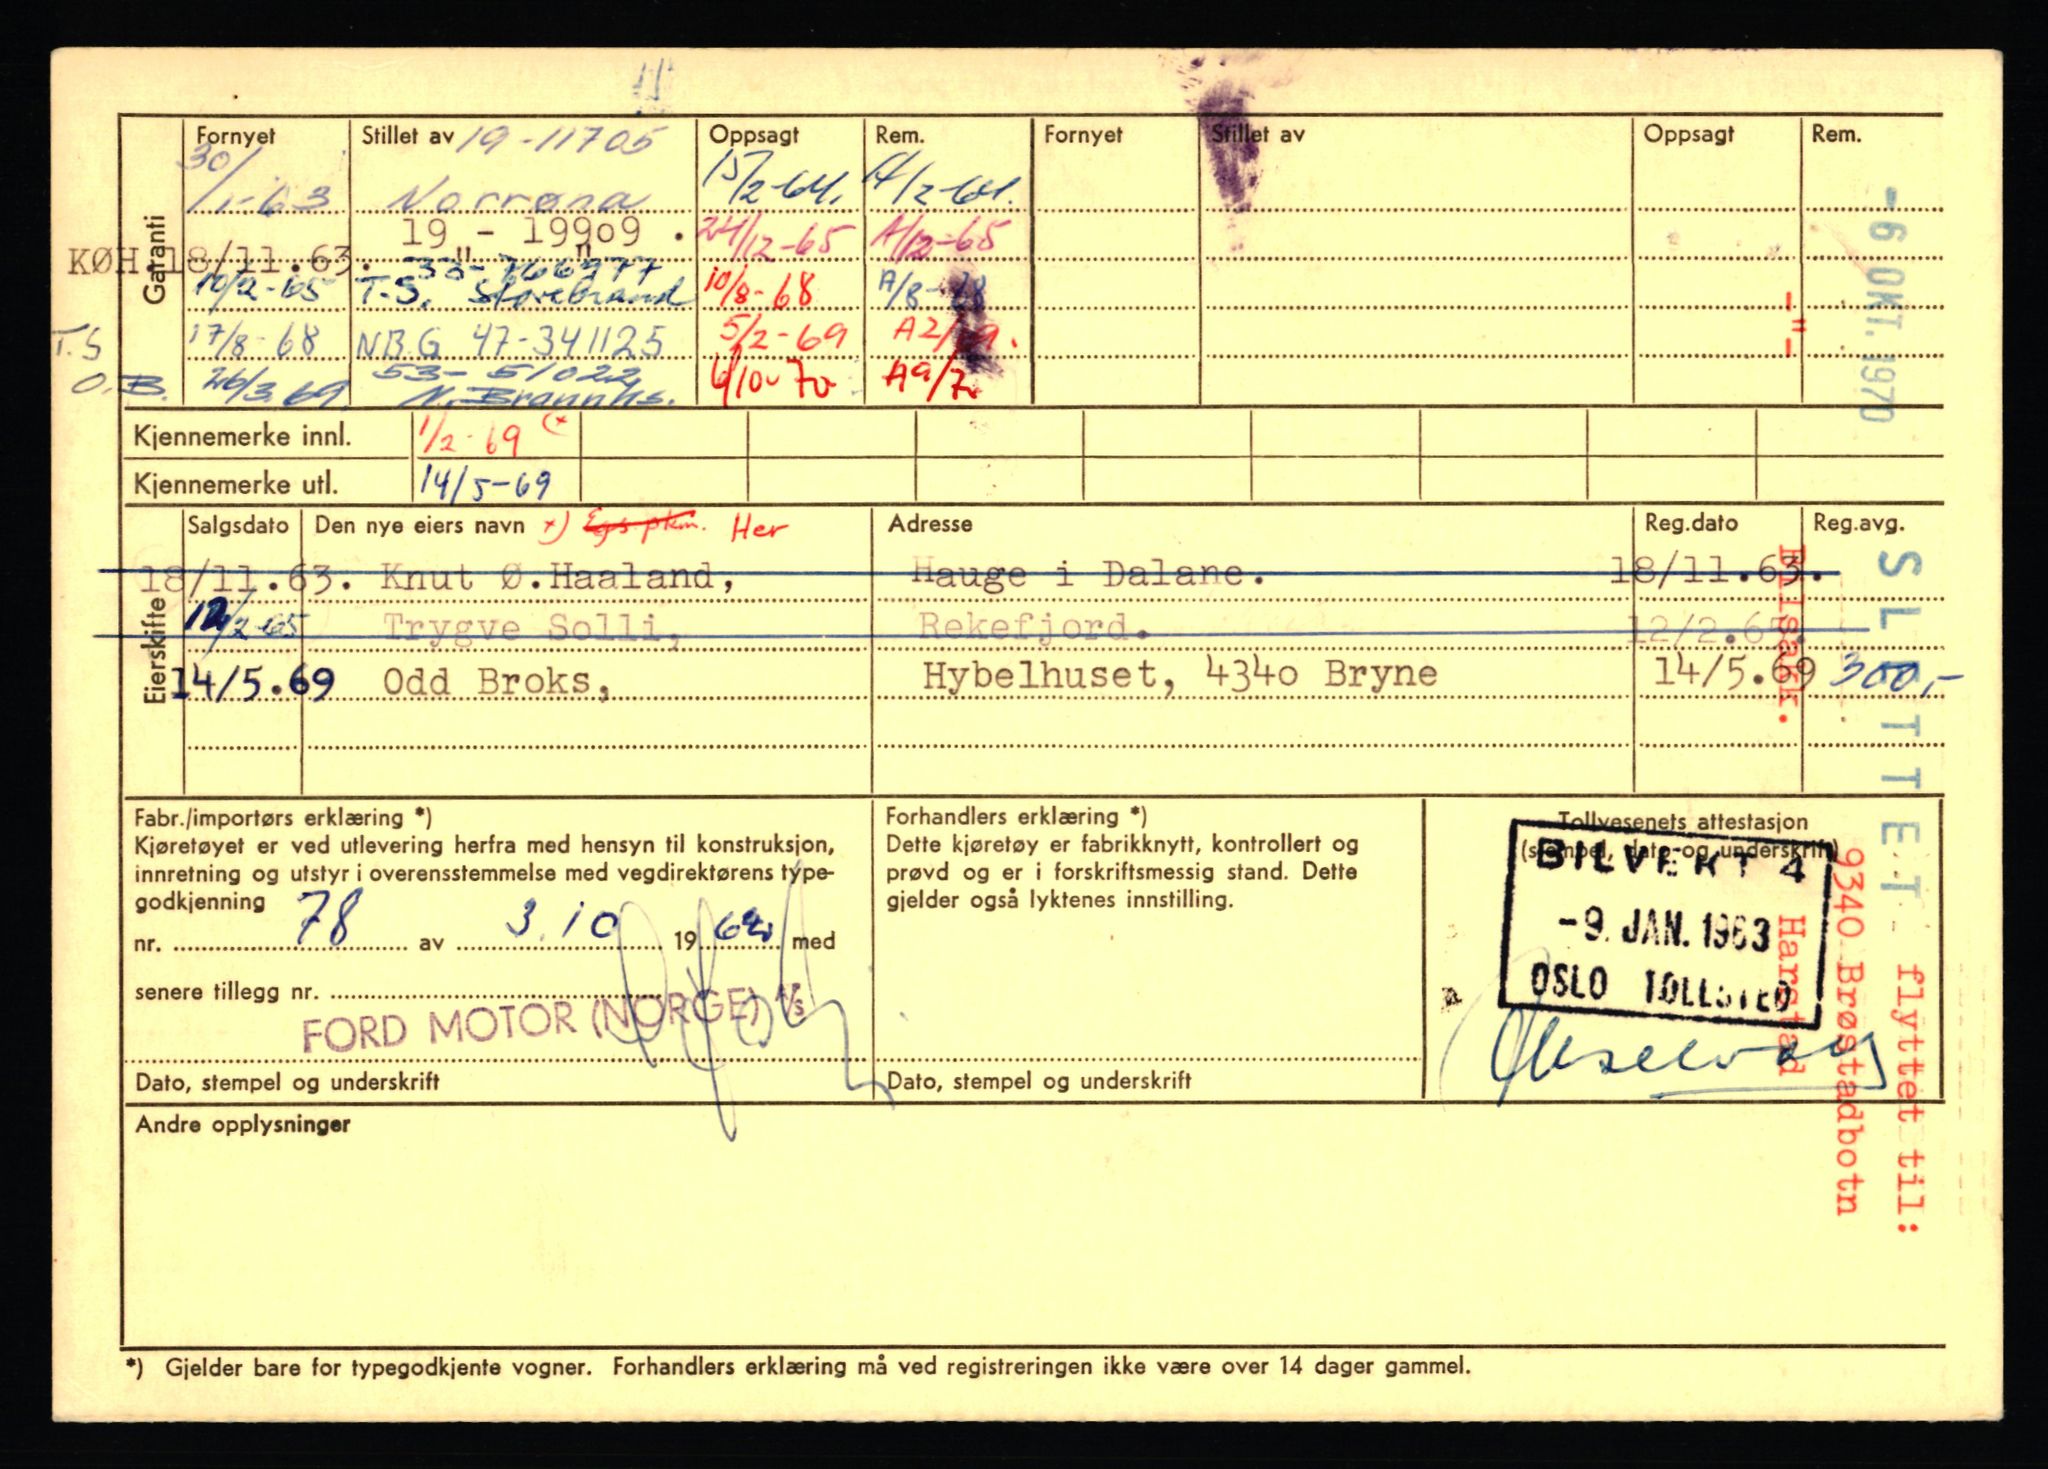 Garanti
Fornyet Stillet av Oppsagt Rem. Fornyet Stillet av Oppsagt Rem.
30/1-63 19-11705 Norrøna 15/2-64. A/2-64.
KØH 18/11.63. 19 - 19909 . " " 24/12-65 A/12-65
10/2-65 33-766977 T.S. Storebrand 10/8-68 A/8-68
T.S 17/8-68 NBG 47-341125 5/2-69 A2/69.
O.B. 26/3.69. 53-51022 N. Brannks. 6/10-70 A9/7
Kjennemerke innl. 1/2-69 (x
Kjennemerke utl. 14/5-69
Eierskifte
Salgsdato Den nye eiers navn x) Egs pkm. Her Adresse Reg.dato Reg.avg.
18/11.63. Knut Ø.Haaland, Hauge i Dalane. 18/11.63.
12/2-65 Trygve Solli, Rekefjord. 12/2.65.
14/5.69 Odd Broks, Hybelhuset, 4340 Bryne 14/5.69 300,-
Fabr./importørs erklæring *)
Kjøretøyet er ved utlevering herfra med hensyn til konstruksjon,
innretning og utstyr i overensstemmelse med vegdirektørens type-
godkjenning
nr. 78 av 3.10 1962 med
senere tillegg nr.
FORD MOTOR (NORGE) A/s
Dato, stempel og underskrift
Forhandlers erklæring *)
Dette kjøretøy er fabrikknytt, kontrollert og
prøvd og er i forskriftsmessig stand. Dette
gjelder også lyktenes innstilling.
Dato, stempel og underskrift
Tollvesenets attestasjon
(stempel, dato og underskrift)
BILVEKT 4
-9. JAN. 1963
OSLO TOLLSTED
Andre opplysninger
*) Gjelder bare for typegodkjente vogner. Forhandlers erklæring må ved registreringen ikke være over 14 dager gammel.
-6 OKT. 1970
SLETTET
flyttet til:
9340 Brøstadbotn
-"- Bilsakk. Harstad